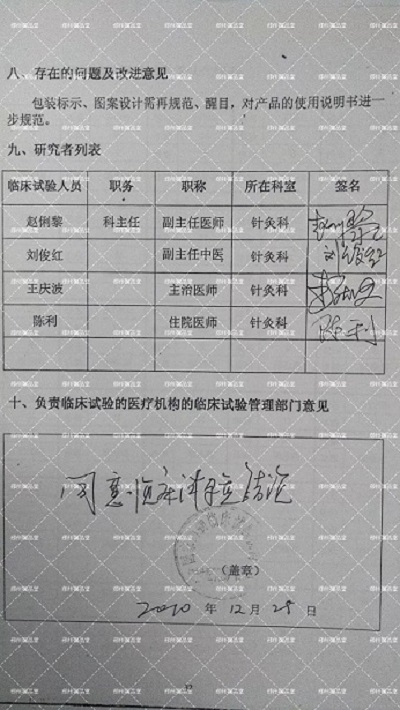 八、存在的问题及改进意见
包装标示、图案设计需再规范、醒目，对产品的使用说明书进一
步规范。
九、研究者列表
临床试验人员 职务 职称 所在科室 签名
赵俐黎 科主任 副主任医师 针灸科
刘俊红 副主任中医 针灸科 刘俊红
王庆波 主治医师 针灸科
陈利 住院医师 针灸科 陈利
十、负责临床试验的医疗机构的临床试验管理部门意见
同意临床试验结论
（盖章）
年12月25日